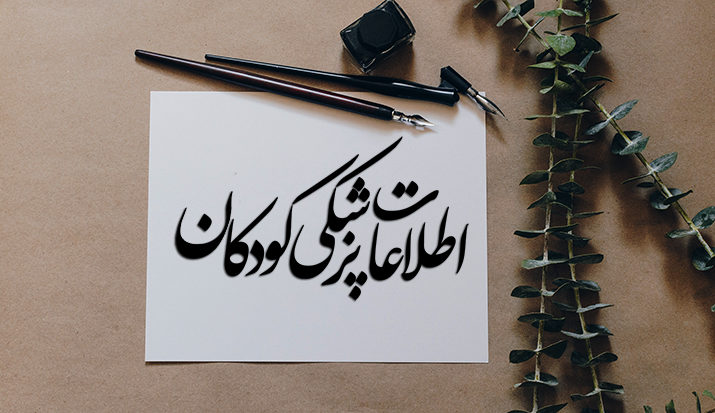 اطلاعات پزشکی کودکان